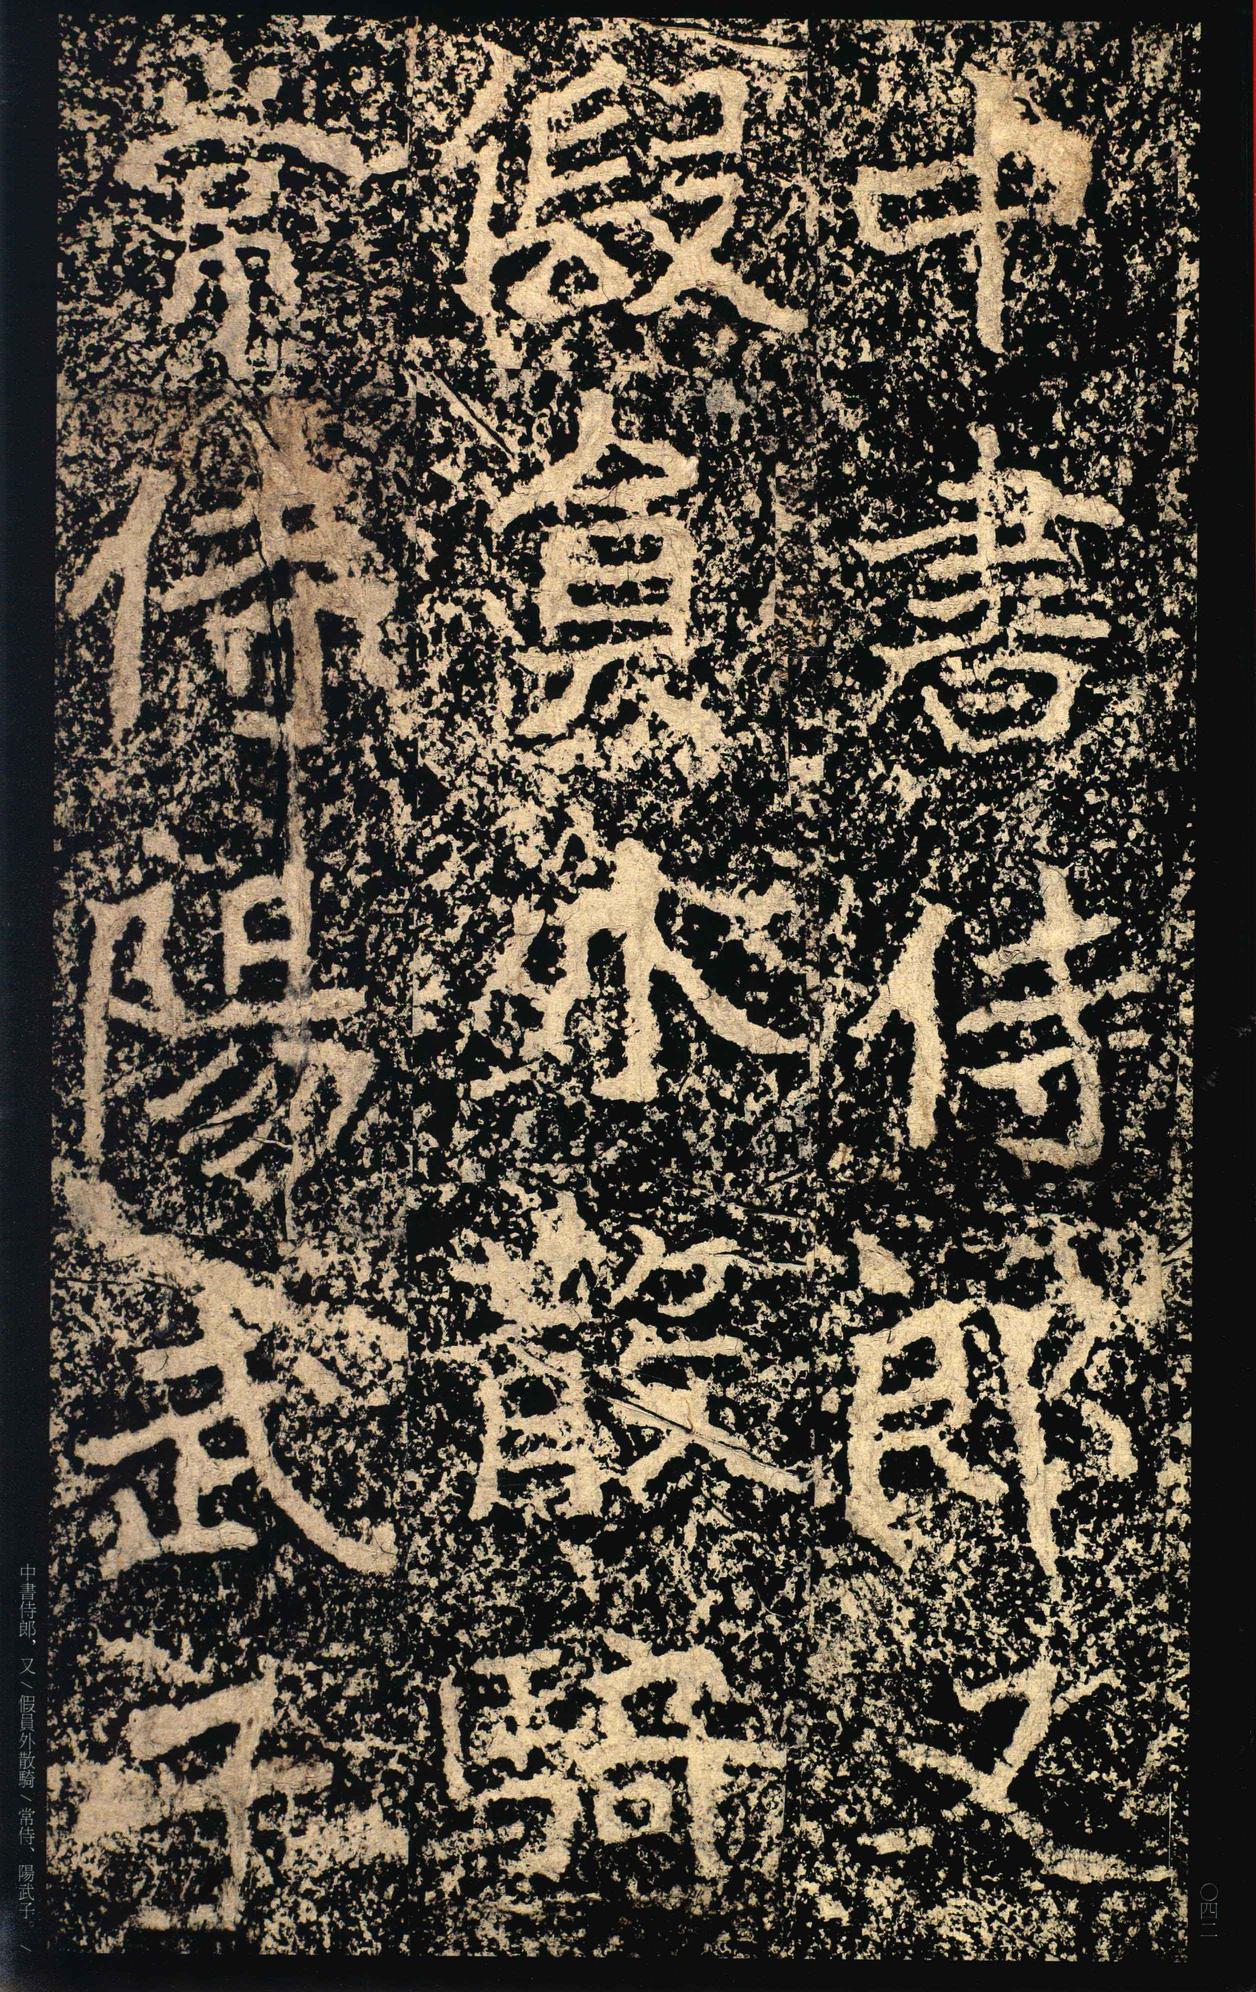 中書侍郎又
假員外散騎
常侍陽武子
中書侍郎，又／假員外散騎／常侍、陽武子。／
〇四二